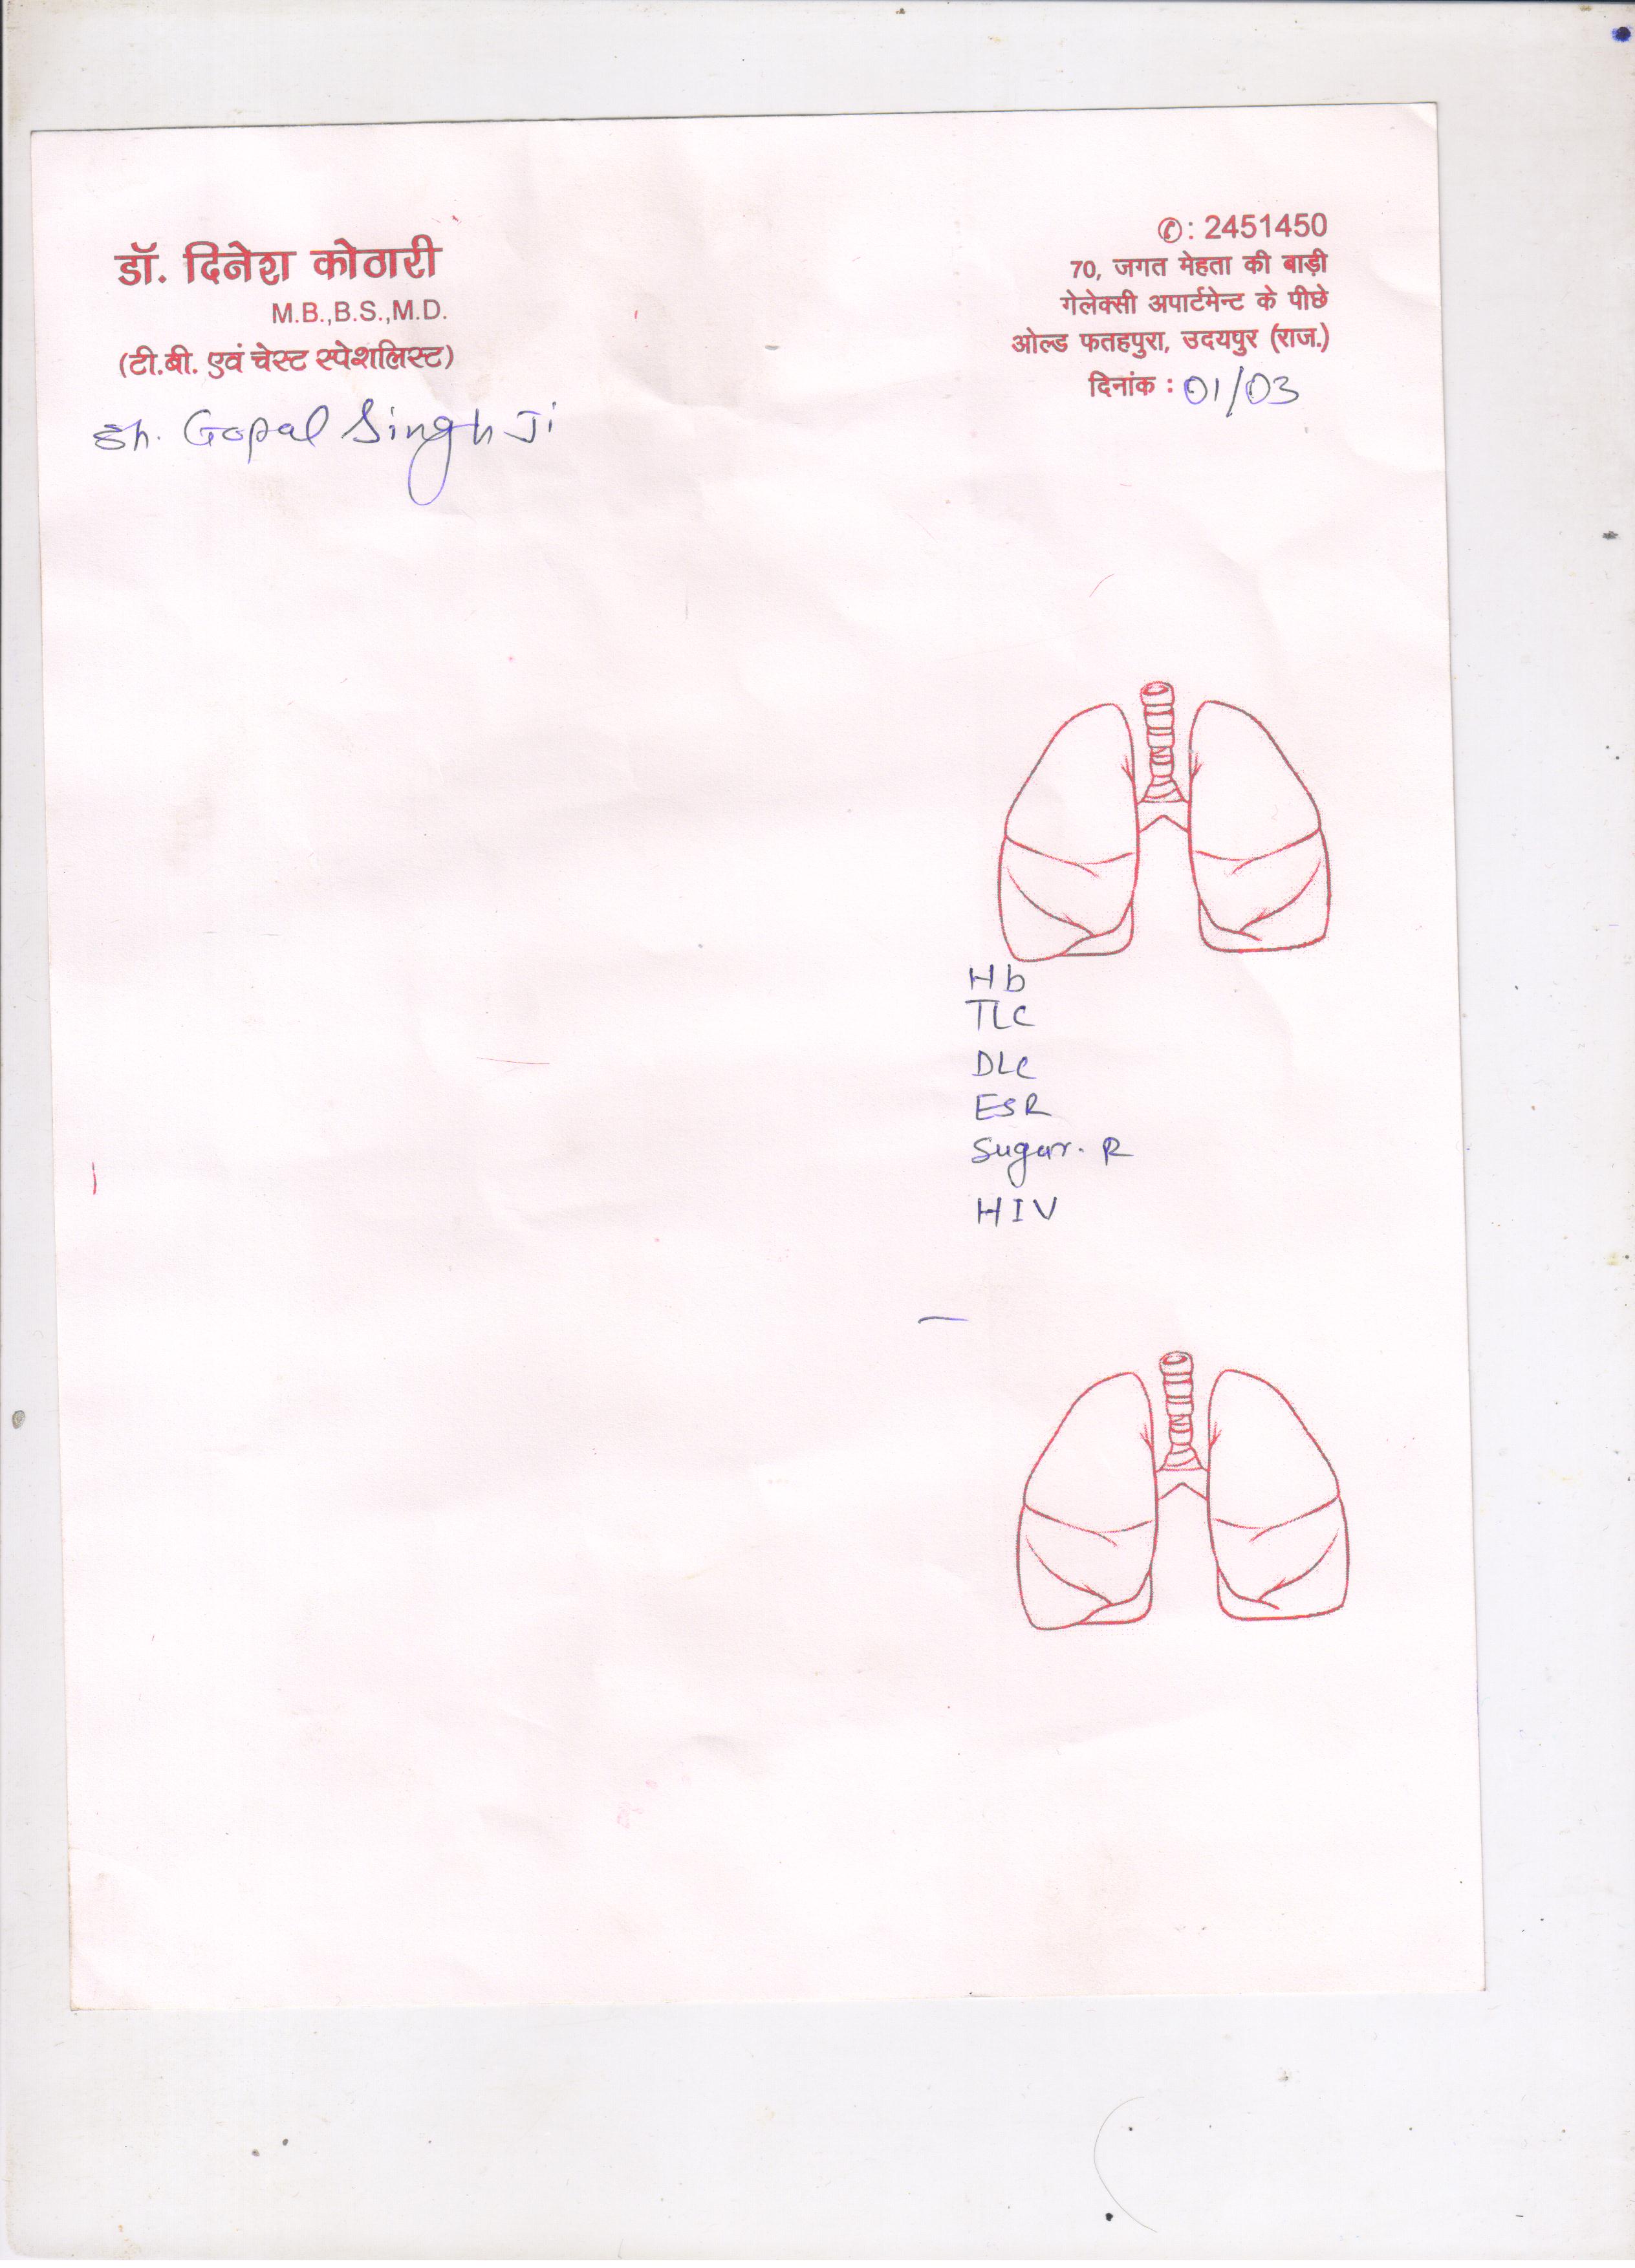 डॉ. दिनेश कोठारी
M.B.,B.S.,M.D.
(टी.बी. एवं चेस्ट स्पेशलिस्ट)
✆: 2451450
70, जगत मेहता की बाड़ी
गेलेक्सी अपार्टमेन्ट के पीछे
ओल्ड फतहपुरा, उदयपुर (राज.)
दिनांक : 01/03
Sh. Gopal Singh Ji
Hb
TLC
DLC
ESR
Sugar. R
HIV